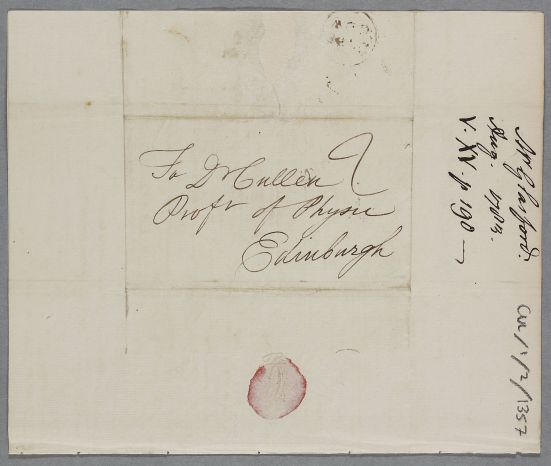 To Dr Cullen
Profr of Physic
Edinburgh
Mr Glasford.
Aug. 1782.
V. XV. p 190
CUL/1/2/1357